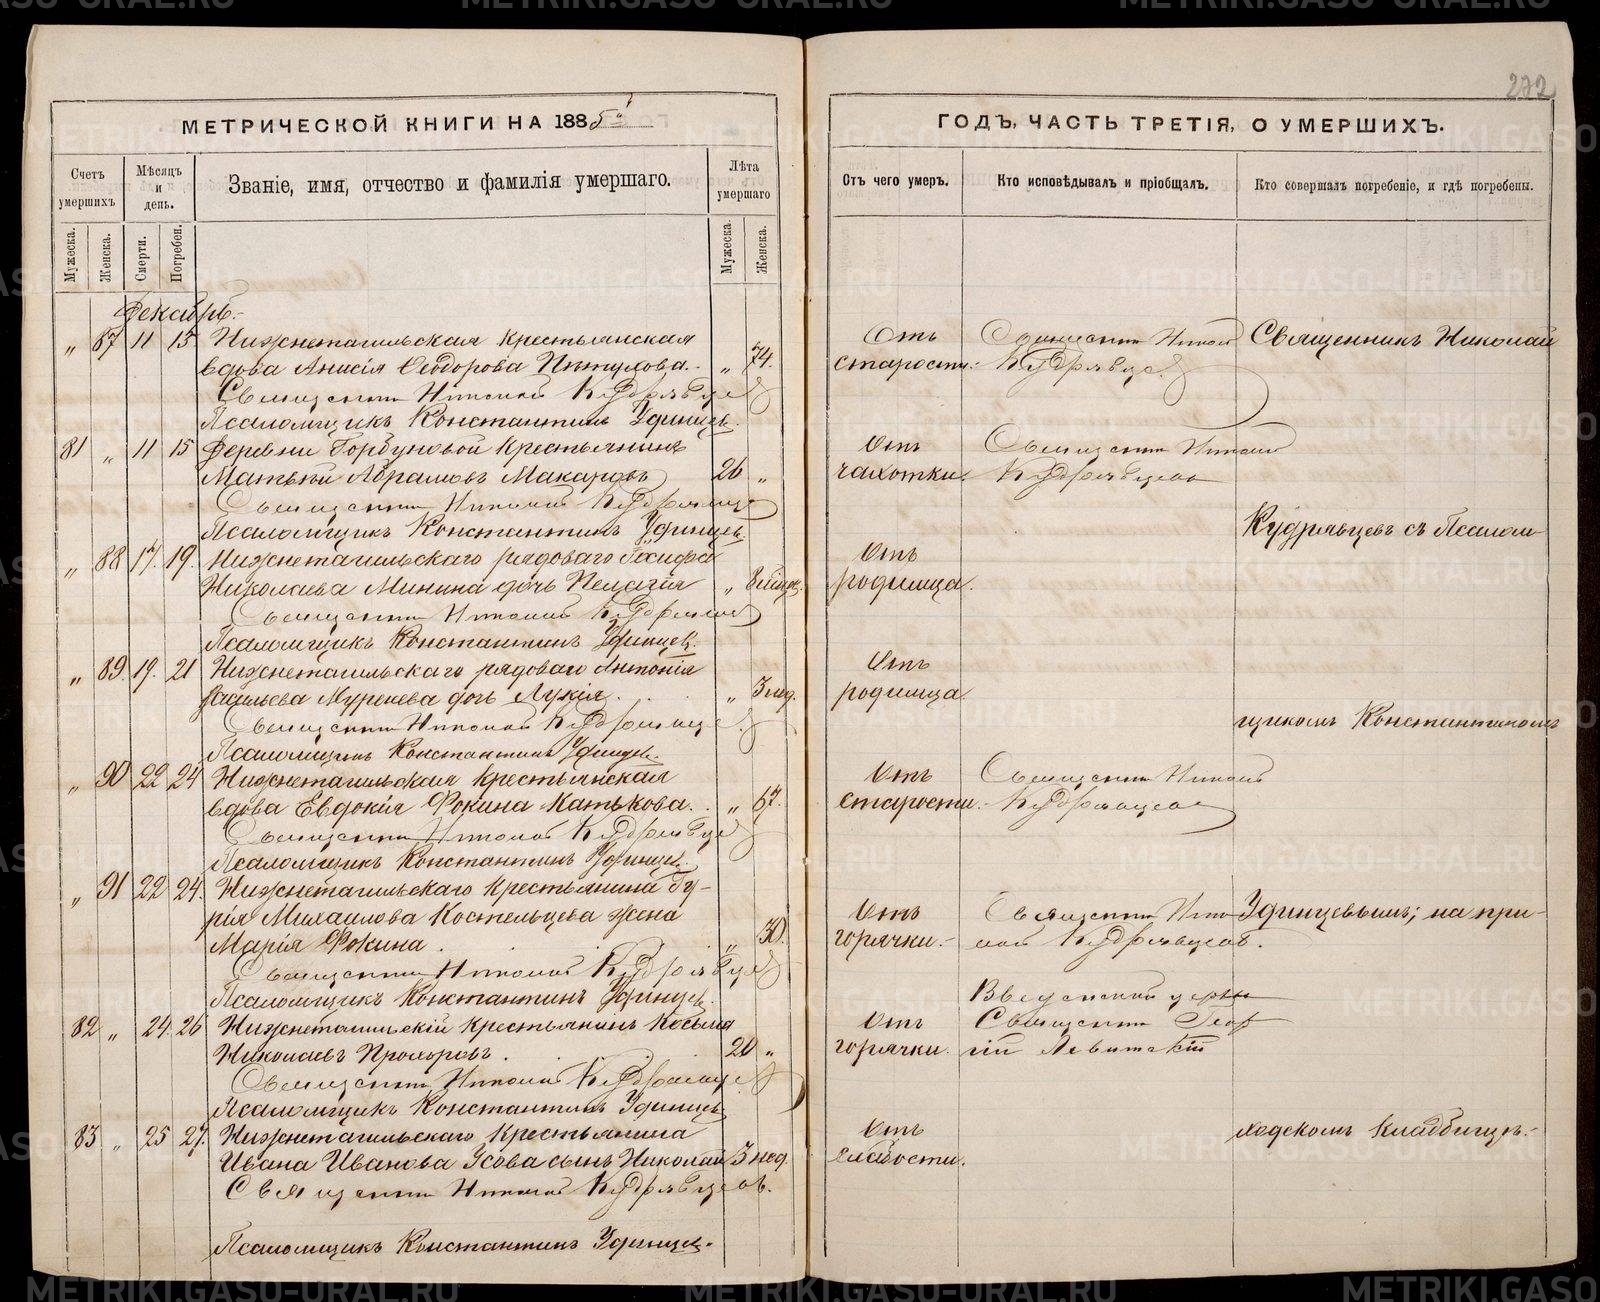 272
МЕТРИЧЕСКОЙ КНИГИ НА 1885й
Счетъ умершихъ
Мѣсяцъ и день.
Званіе, имя, отчество и фамилія умершаго.
Лѣта умершаго
Мужеска.
Женска.
Смерти.
Погребен.
Мужеска.
Женска.
Декабрь.
„ 87 11 13 Нижнетагильская крестьянская
вдова Анисія Ѳеодорова . „ 74.
Священникъ Николай Кудрявцевъ
Псаломщикъ Константинъ Удинцевъ.
81 „ 11 15 Деревни Горбуновой крестьянинъ
Матѳей Абрамовъ Макаровъ 26 „
Священникъ Николай Кудрявцевъ
Псаломщикъ Константинъ Удинцевъ.
„ 88 17. 19. Нижнетагильскаго рядоваго Іосифа
Николаева Минина дочь Пелагія „ 8 мѣсяц.
Священникъ Николай Кудрявцевъ
Псаломщикъ Константинъ Удинцевъ.
„ 89. 19. 21 Нижнетагильскаго рядоваго Антонія
Васильева дочь Лукія. „ 3 нед.
Священникъ Николай Кудрявцевъ
Псаломщикъ Константинъ Удинцевъ.
„ 90 22 24 Нижнетагильская крестьянская
вдова Евдокія Фокина Катькова. „ 67.
Священникъ Николай Кудрявцевъ
Псаломщикъ Константинъ Удинцевъ.
„ 91 22 24. Нижнетагильскаго крестьянина Гу-
рія Михаилова Костельцева жена
Марія Фокина. „ 30.
Священникъ Николай Кудрявцевъ
Псаломщикъ Константинъ Удинцевъ.
82 „ 24. 26 Нижнетагильскій крестьянинъ Косьма
Николаевъ Прохоровъ. 20 „
Священникъ Николай Кудрявцевъ
Псаломщикъ Константинъ Удинцевъ
83 „ 25 27. Нижнетагильскаго крестьянина
Ивана Иванова Усова сынъ Николай 3 нед.
Священникъ Николай Кудрявцевъ.
Псаломщикъ Константинъ Удинцевъ.
ГОДЪ, ЧАСТЬ ТРЕТІЯ, О УМЕРШИХЪ.
Отъ чего умеръ.
Кто исповѣдывалъ и пріобщалъ.
Кто совершалъ погребеніе, и гдѣ погребены.
Отъ Священникъ Николай Священникъ Николай
старости. Кудрявцевъ.
Отъ Священникъ Николай
чахотки. Кудрявцевъ
Кудрявцевъ съ Псалом-
Отъ
родимца.
Отъ
родимца
щикомъ Константиномъ
Отъ Священникъ Николай
старости. Кудрявцевъ
Отъ Священникъ Нико- Удинцевымъ; на при-
горячки. лай Кудрявцевъ.
Введенской церкви
Отъ Священникъ Геор-
горячки. гій Левитскій
ходскомъ кладбищѣ.
Отъ
слабости.
METRIKI.GASO-URAL.RU